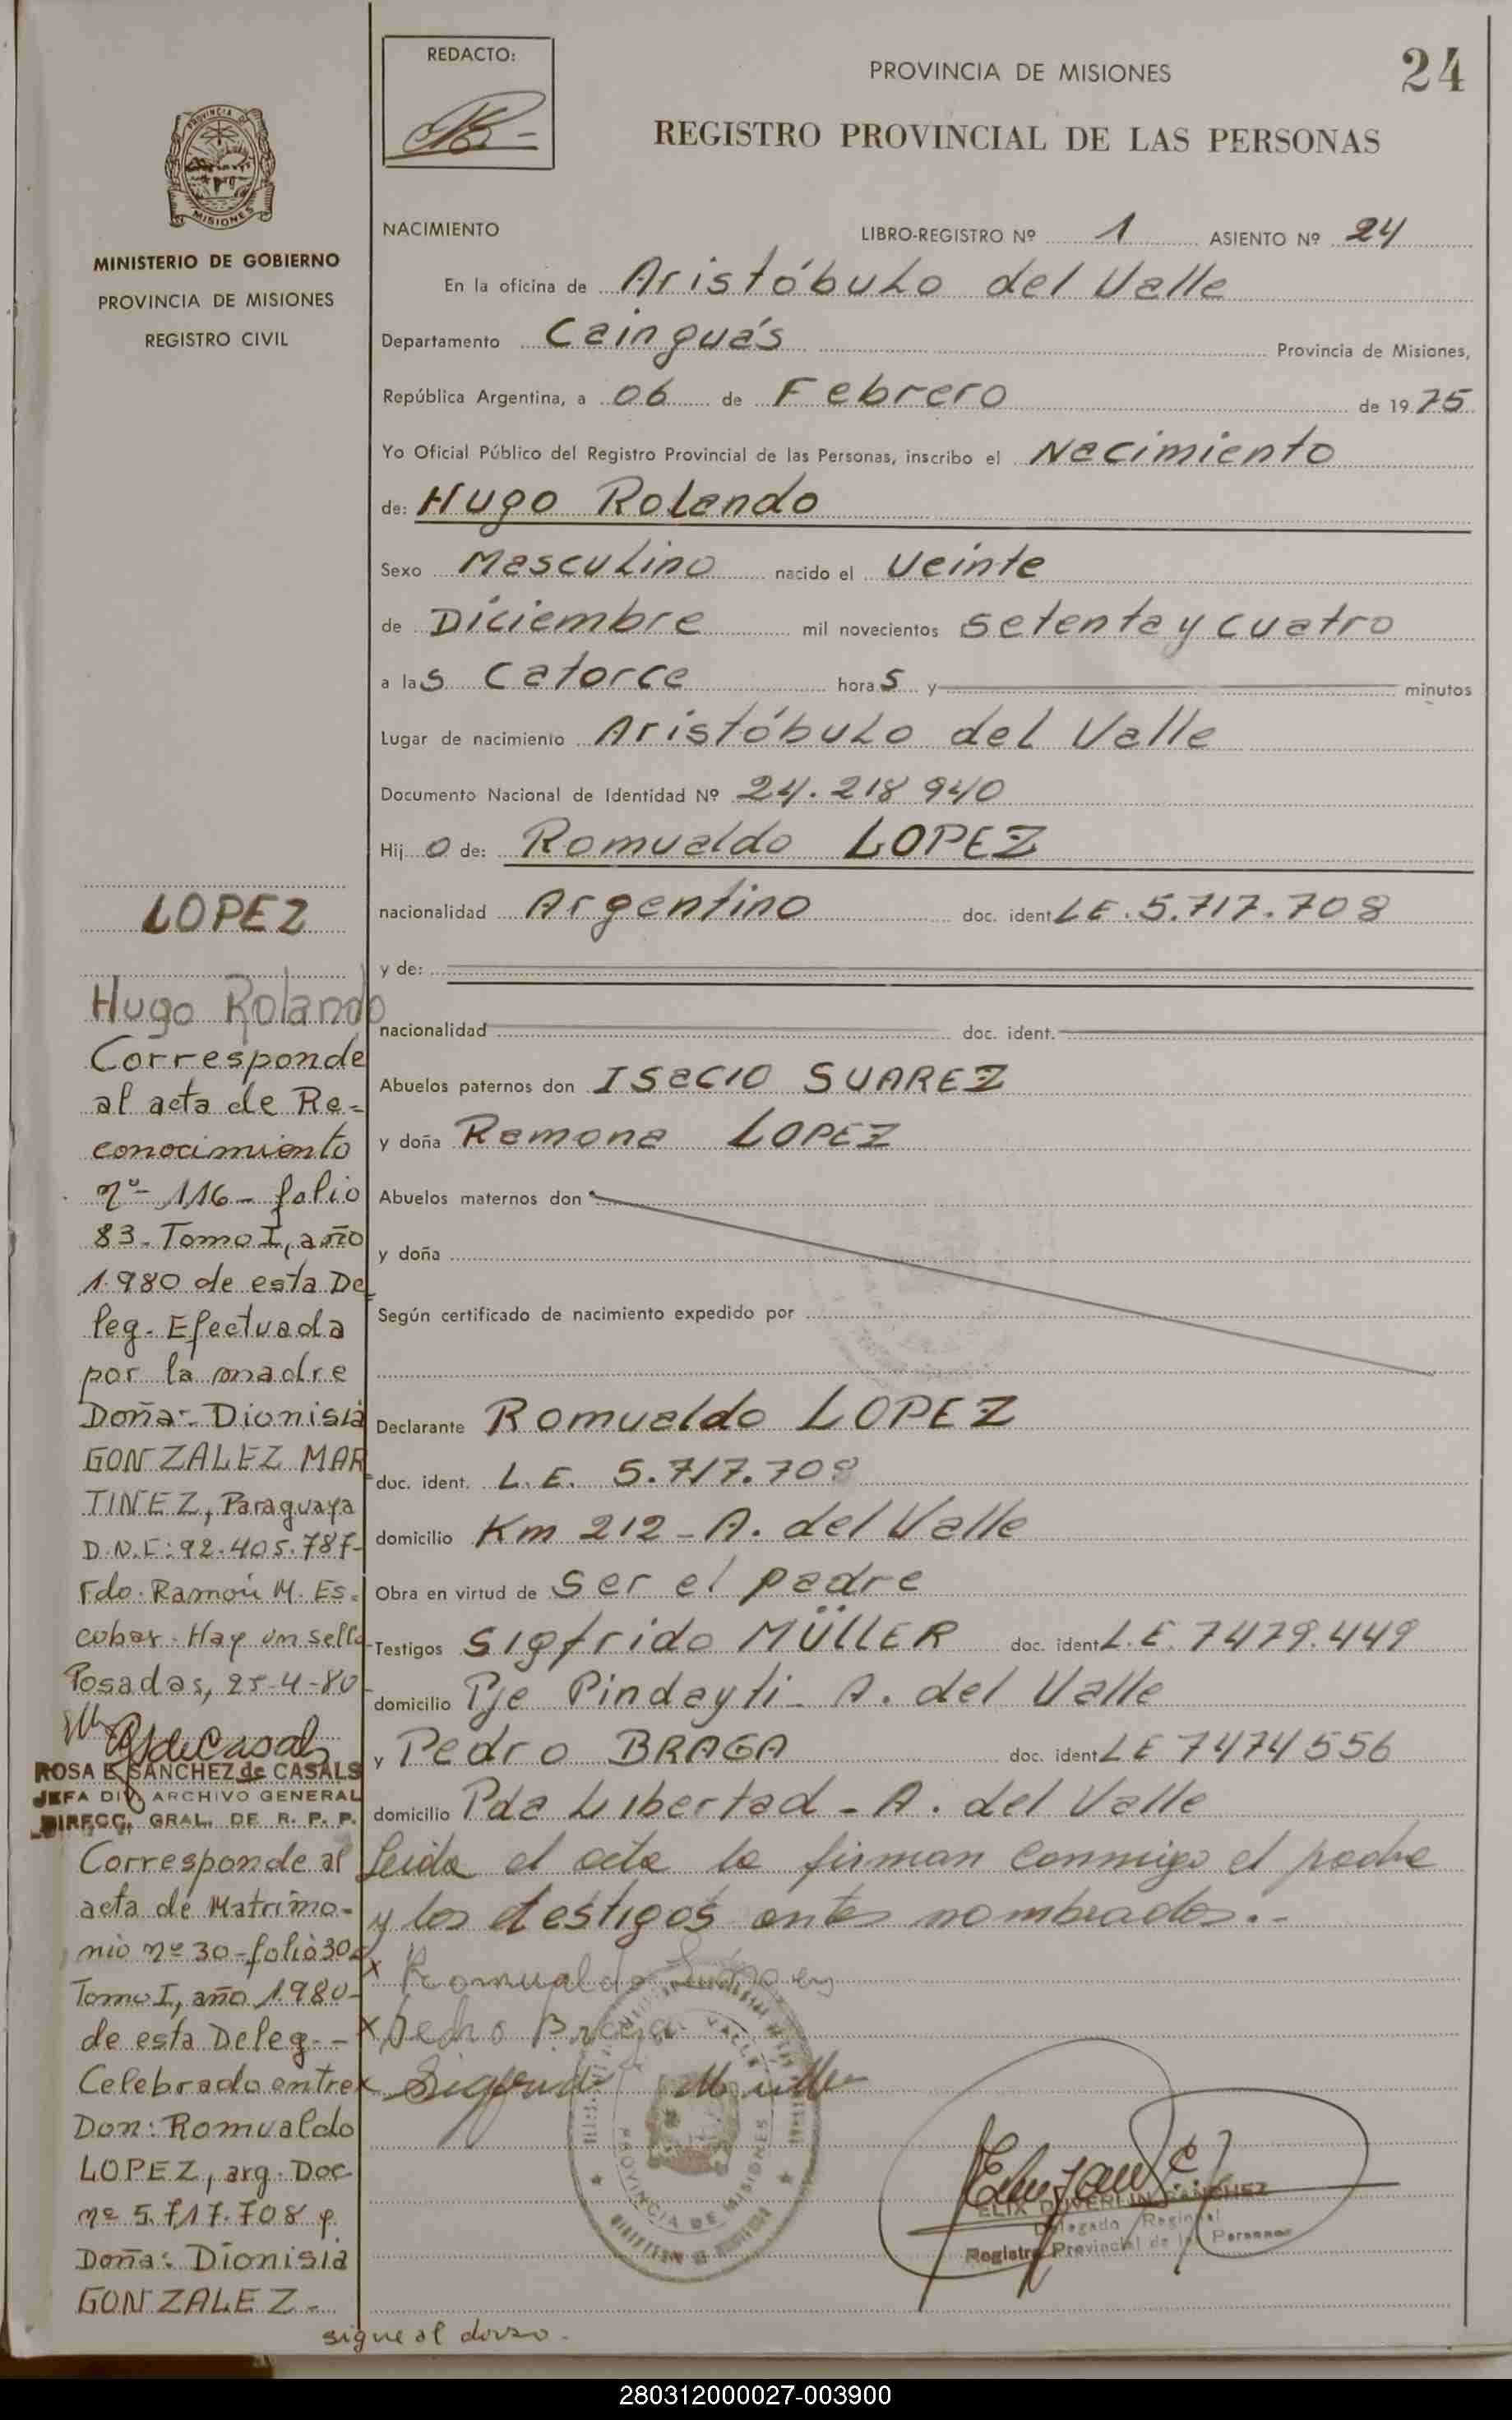 REDACTO:
PROVINCIA DE MISIONES
24
REGISTRO PROVINCIAL DE LAS PERSONAS
PROVINCIA D
MISIONES
MINISTERIO DE GOBIERNO
PROVINCIA DE MISIONES
REGISTRO CIVIL
NACIMIENTO LIBRO-REGISTRO Nº 1 ASIENTO Nº 24
En la oficina de Aristóbulo del Valle
Departamento Cainguás Provincia de Misiones,
República Argentina, a 06 de Febrero de 1975
Yo Oficial Público del Registro Provincial de las Personas, inscribo el Nacimiento
de: Hugo Rolando
Sexo Masculino nacido el veinte
de Diciembre mil novecientos setenta y cuatro
a las catorce horas y minutos
Lugar de nacimiento Aristóbulo del Valle
Documento Nacional de Identidad Nº 24.218940
Hijo de: Romualdo LOPEZ
nacionalidad Argentino doc. ident L.E. 5.717.708
y de:
nacionalidad doc. ident.
Abuelos paternos don Isacio SUAREZ
y doña Ramona LOPEZ
Abuelos maternos don
y doña
Según certificado de nacimiento expedido por
Declarante Romualdo LOPEZ
doc. ident. L.E. 5.717.708
domicilio Km 212 - A. del Valle
Obra en virtud de ser el padre
Testigos Sigfrido MÜLLER doc. ident L.E. 7479.449
domicilio Pje Pindayti - A. del Valle
y Pedro BRAGA doc. ident LE 7474556
domicilio Pda Libertad - A. del Valle
Leida el acta la firman conmigo el padre
y los testigos antes nombrados.-
x Romualdo
x Pedro Braga
x Sigfrido Müller
VALLE
PROVINCIA DE MISIONES
FELIX DUVERLIN SANCHEZ
Delegado Regional
Registro Provincial de las Personas
LOPEZ
Hugo Rolando
Corresponde
al acta de Re-
conocimiento
nº- 116- folio
83- Tomo I, año
1.980 de esta De
leg- Efectuada
por la madre
Doña:- Dionisia
GONZALEZ MAR
TINEZ, Paraguaya
D.N.I: 92.405.787-
Fdo: Ramón M. Es-
cobar- Hay un sello
Posadas, 25-4-80
ROSA E. SANCHEZ de CASALS
JEFA DIV. ARCHIVO GENERAL
DIRECC. GRAL. DE R. P. P.
Corresponde al
acta de Matrimo-
nio nº 30-folio 30-
Tomo I, año 1.980-
de esta Deleg--
Celebrado entre
Don: Romualdo
LOPEZ, arg. Doc
nº 5.717.708 y
Doña: Dionisia
GONZALEZ-
sigue al dorso-
280312000027-003900